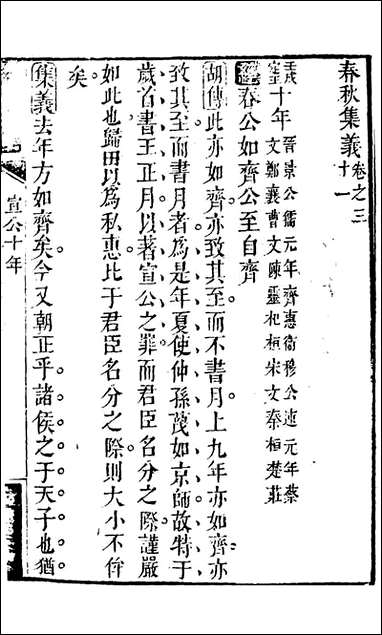 春秋集義卷之三十一
壬戌定王十年晉景公獳元年齊惠衛穆公速元年蔡文鄭襄曹文陳靈杞桓宋文秦桓楚莊
經春公如齊公至自齊
胡傳此亦如齊亦致其至而不書月上九年亦如齊亦
致其至而書月者為是年夏使仲孫蔑如京師故特于
歲首書王正月以著宣公之罪而君臣名分之際謹嚴
如此也歸田以為私惠比于君臣名分之際則大小不侔
矣
集義去年方如齊矣今又朝正乎諸侯之于天子也猶
宣公十年